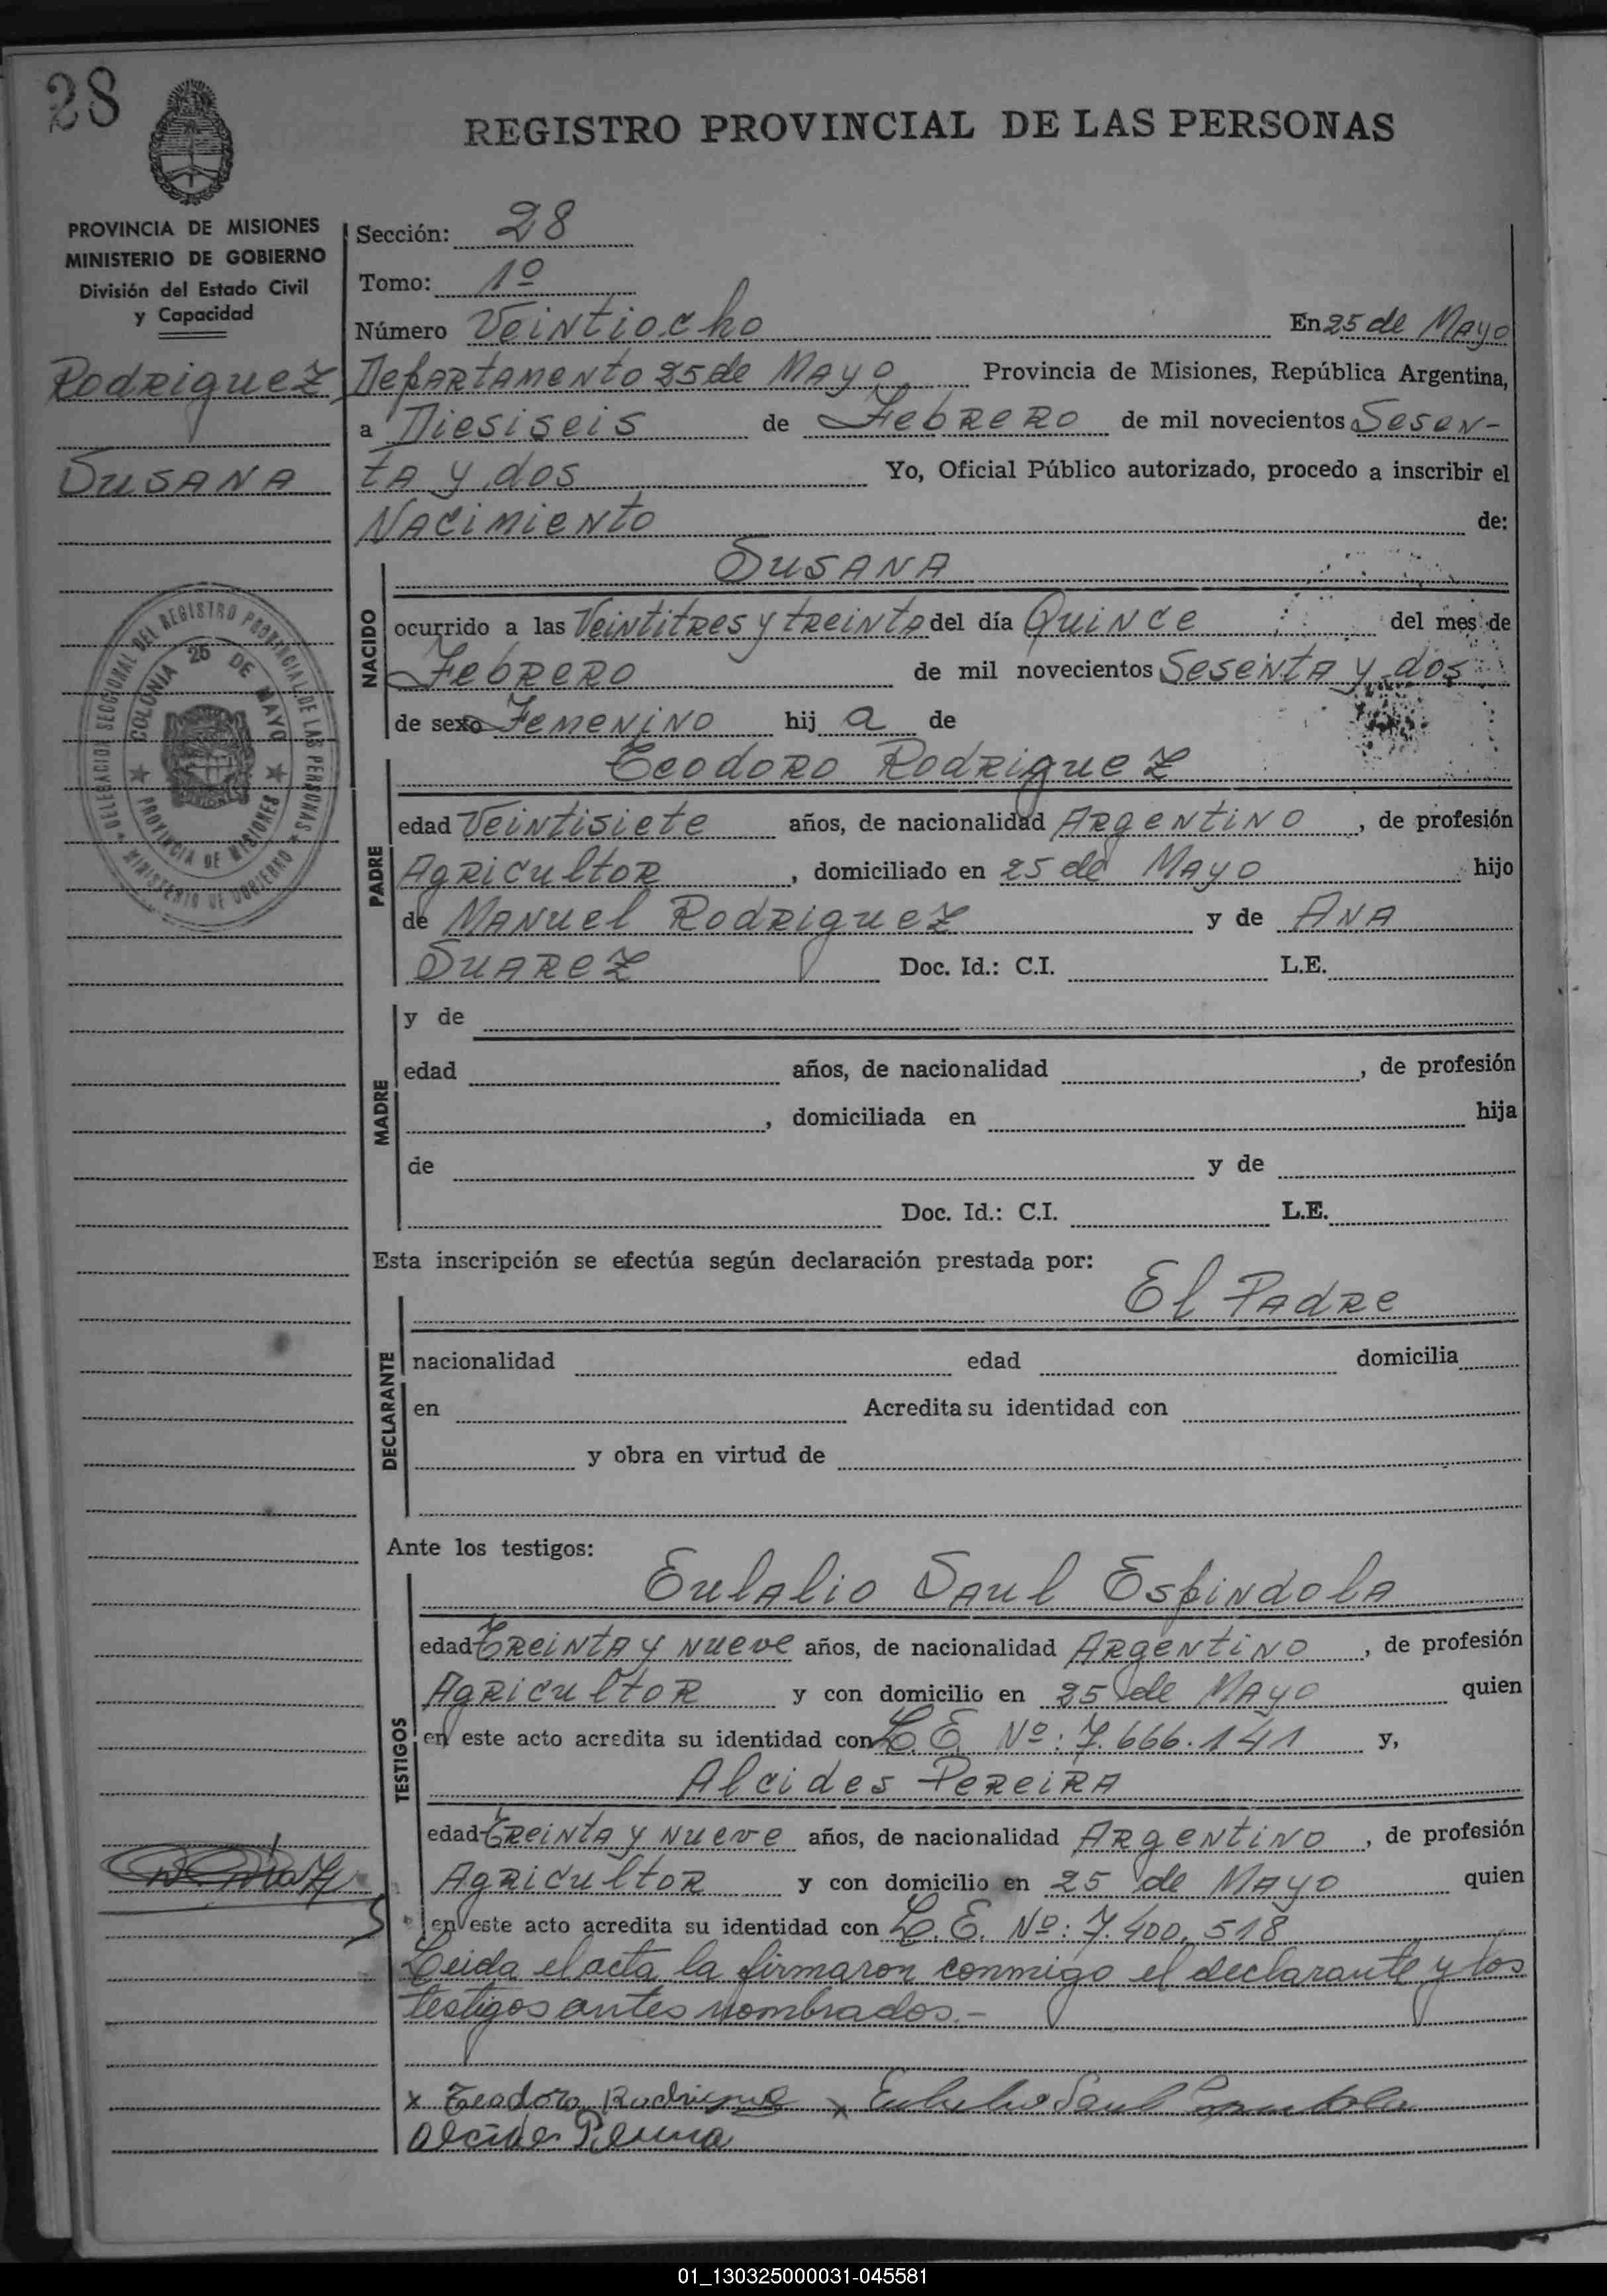 28
REGISTRO PROVINCIAL DE LAS PERSONAS
PROVINCIA DE MISIONES
MINISTERIO DE GOBIERNO
División del Estado Civil
y Capacidad
Rodriguez
Susana
DELEGACION SECCIONAL DEL REGISTRO PROVINCIAL DE LAS PERSONAS
MINISTERIO DE GOBIERNO
COLONIA 25 DE MAYO
PROVINCIA DE MISIONES
Sección: 28
Tomo: 1º
Número Veintiocho En 25 de Mayo
Departamento 25 de Mayo, Provincia de Misiones, República Argentina,
a Diesiseis de Febrero de mil novecientos Sesen-
ta y dos Yo, Oficial Público autorizado, procedo a inscribir el
Nacimiento de:
NACIDO
Susana
ocurrido a las Veintitres y treinta del día Quince del mes de
Febrero de mil novecientos Sesenta y dos
de sexo Femenino hij a de
PADRE
Teodoro Rodriguez
edad Veintisiete años, de nacionalidad Argentino, de profesión
Agricultor, domiciliado en 25 de Mayo hijo
de Manuel Rodriguez y de Ana
Suarez Doc. Id.: C.I. L.E.
MADRE
y de
edad años, de nacionalidad , de profesión
, domiciliada en hija
de y de
Doc. Id.: C.I. L.E.
Esta inscripción se efectúa según declaración prestada por:
El Padre
DECLARANTE
nacionalidad edad domicilia
en Acredita su identidad con
y obra en virtud de
Ante los testigos:
TESTIGOS
Eulalio Saul Espindola
edad Treinta y nueve años, de nacionalidad Argentino, de profesión
Agricultor y con domicilio en 25 de Mayo quien
en este acto acredita su identidad con L.E. Nº: 7.666.141 y,
Alcides Pereira
edad Treinta y nueve años, de nacionalidad Argentino, de profesión
Agricultor y con domicilio en 25 de Mayo quien
en este acto acredita su identidad con L.E. Nº: 7.400.518
Leida el acta la firmaron conmigo el declarante y los
testigos antes nombrados.-
x Teodoro Rodriguez x Eulalio Saul Espindola
Alcides Pereira
01_130325000031-045581